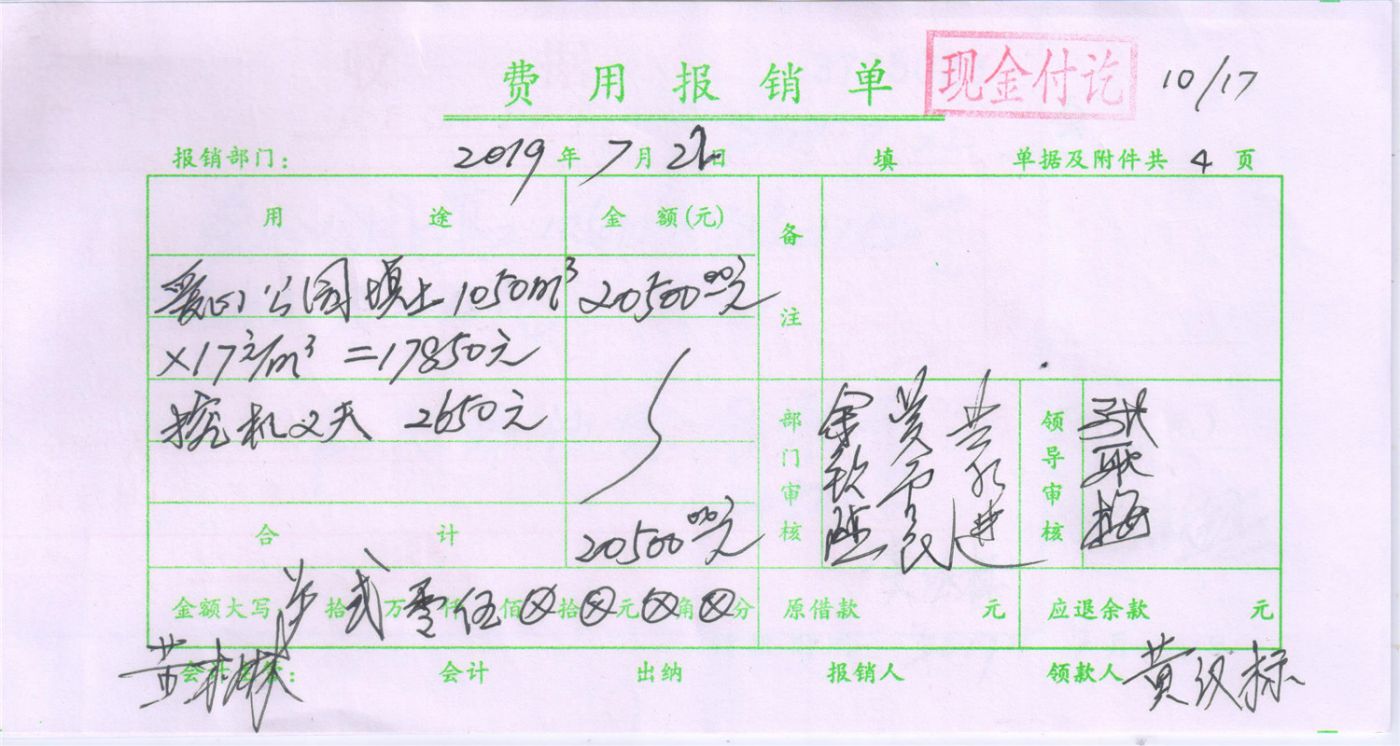 费用报销单 现金付讫 10/17
报销部门： 2019年7月 日 填 单据及附件共 4 页
用途 金额(元) 备注
爱心公园填土1050m³ 20500.00元
×17元/m³=17850元
挖机2天 2650元
部门审核 领导审核
合计 20500.00元
金额大写 拾 贰万零仟伍佰⊗拾⊗元⊗角⊗分 原借款 元 应退余款 元
会计 出纳 报销人 领款人 黄仪标